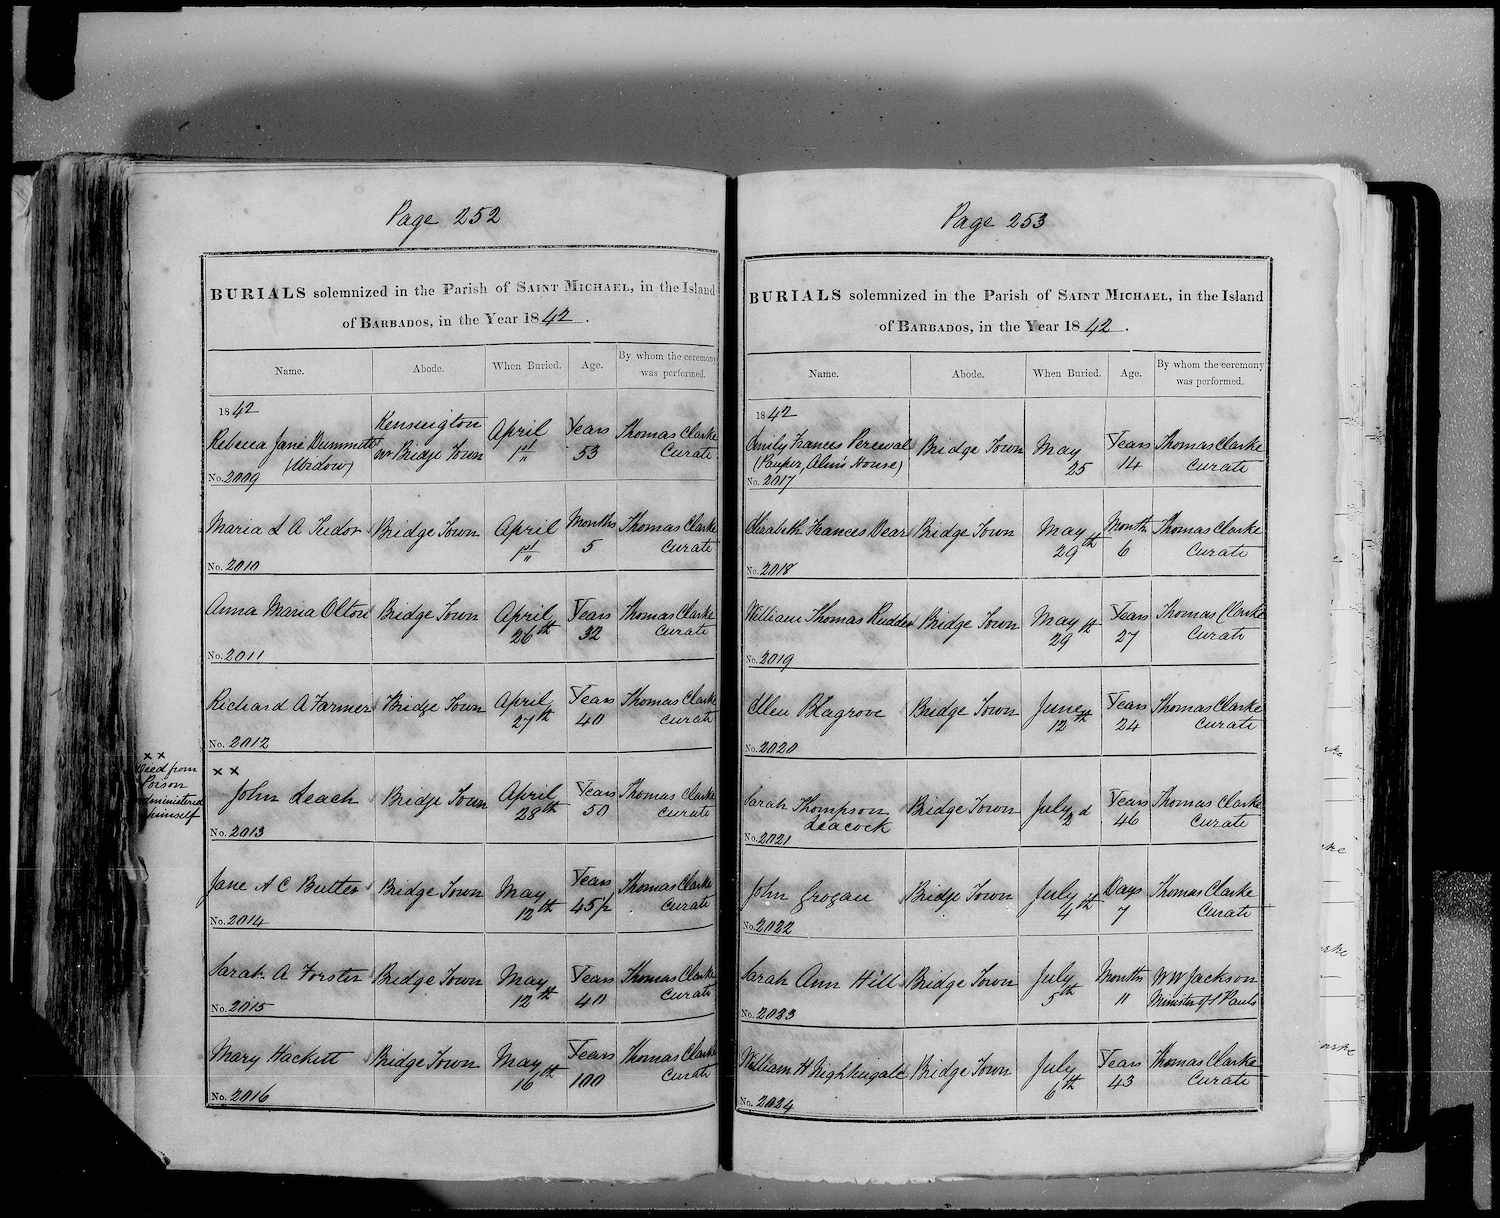 Page 252
BURIALS solemnized in the Parish of SAINT MICHAEL, in the Island
of BARBADOS, in the Year 1842.
Name. Abode. When Buried. Age. By whom the ceremony was performed.
1842
Rebecca Jane Dummett Kensington April Years Thomas Clarke
(Widow) nr Bridge Town 1st 53 Curate
No. 2009
Maria L A Tudor Bridge Town April Months Thomas Clarke
1st 5 Curate
No. 2010
Anna Maria Olton Bridge Town April Years Thomas Clarke
26th 32 Curate
No. 2011
Richard A Farmer Bridge Town April Years Thomas Clarke
27th 40 Curate
No. 2012
x x
Died from
Poison
administered
himself
x x
John Leach Bridge Town April Years Thomas Clarke
28th 50 Curate
No. 2013
Jane A C Butler Bridge Town May Years Thomas Clarke
12th 45 1/2 Curate
No. 2014
Sarah A Forster Bridge Town May Years Thomas Clarke
12th 40 Curate
No. 2015
Mary Hackett Bridge Town May Years Thomas Clarke
16th 100 Curate
No. 2016
Page 253
BURIALS solemnized in the Parish of SAINT MICHAEL, in the Island
of BARBADOS, in the Year 1842.
Name. Abode. When Buried. Age. By whom the ceremony was performed.
1842
Emily Frances Perceval Bridge Town May Years Thomas Clarke
(Pauper, Alms House) 25 14 Curate
No. 2017
Elizabeth Frances Dear Bridge Town May Month Thomas Clarke
29th 6 Curate
No. 2018
William Thomas Rudder Bridge Town May Years Thomas Clarke
29th 27 Curate
No. 2019
Ellen Blagrove Bridge Town June Years Thomas Clarke
12th 24 Curate
No. 2020
Sarah Thompson Bridge Town July Years Thomas Clarke
Leacock 2d 46 Curate
No. 2021
John Grogan Bridge Town July Days Thomas Clarke
4th 7 Curate
No. 2022
Sarah Ann Hill Bridge Town July Months W W Jackson
5th 11 Minister of St Pauls
No. 2023
William H Nightingale Bridge Town July Years Thomas Clarke
6th 43 Curate
No. 2024